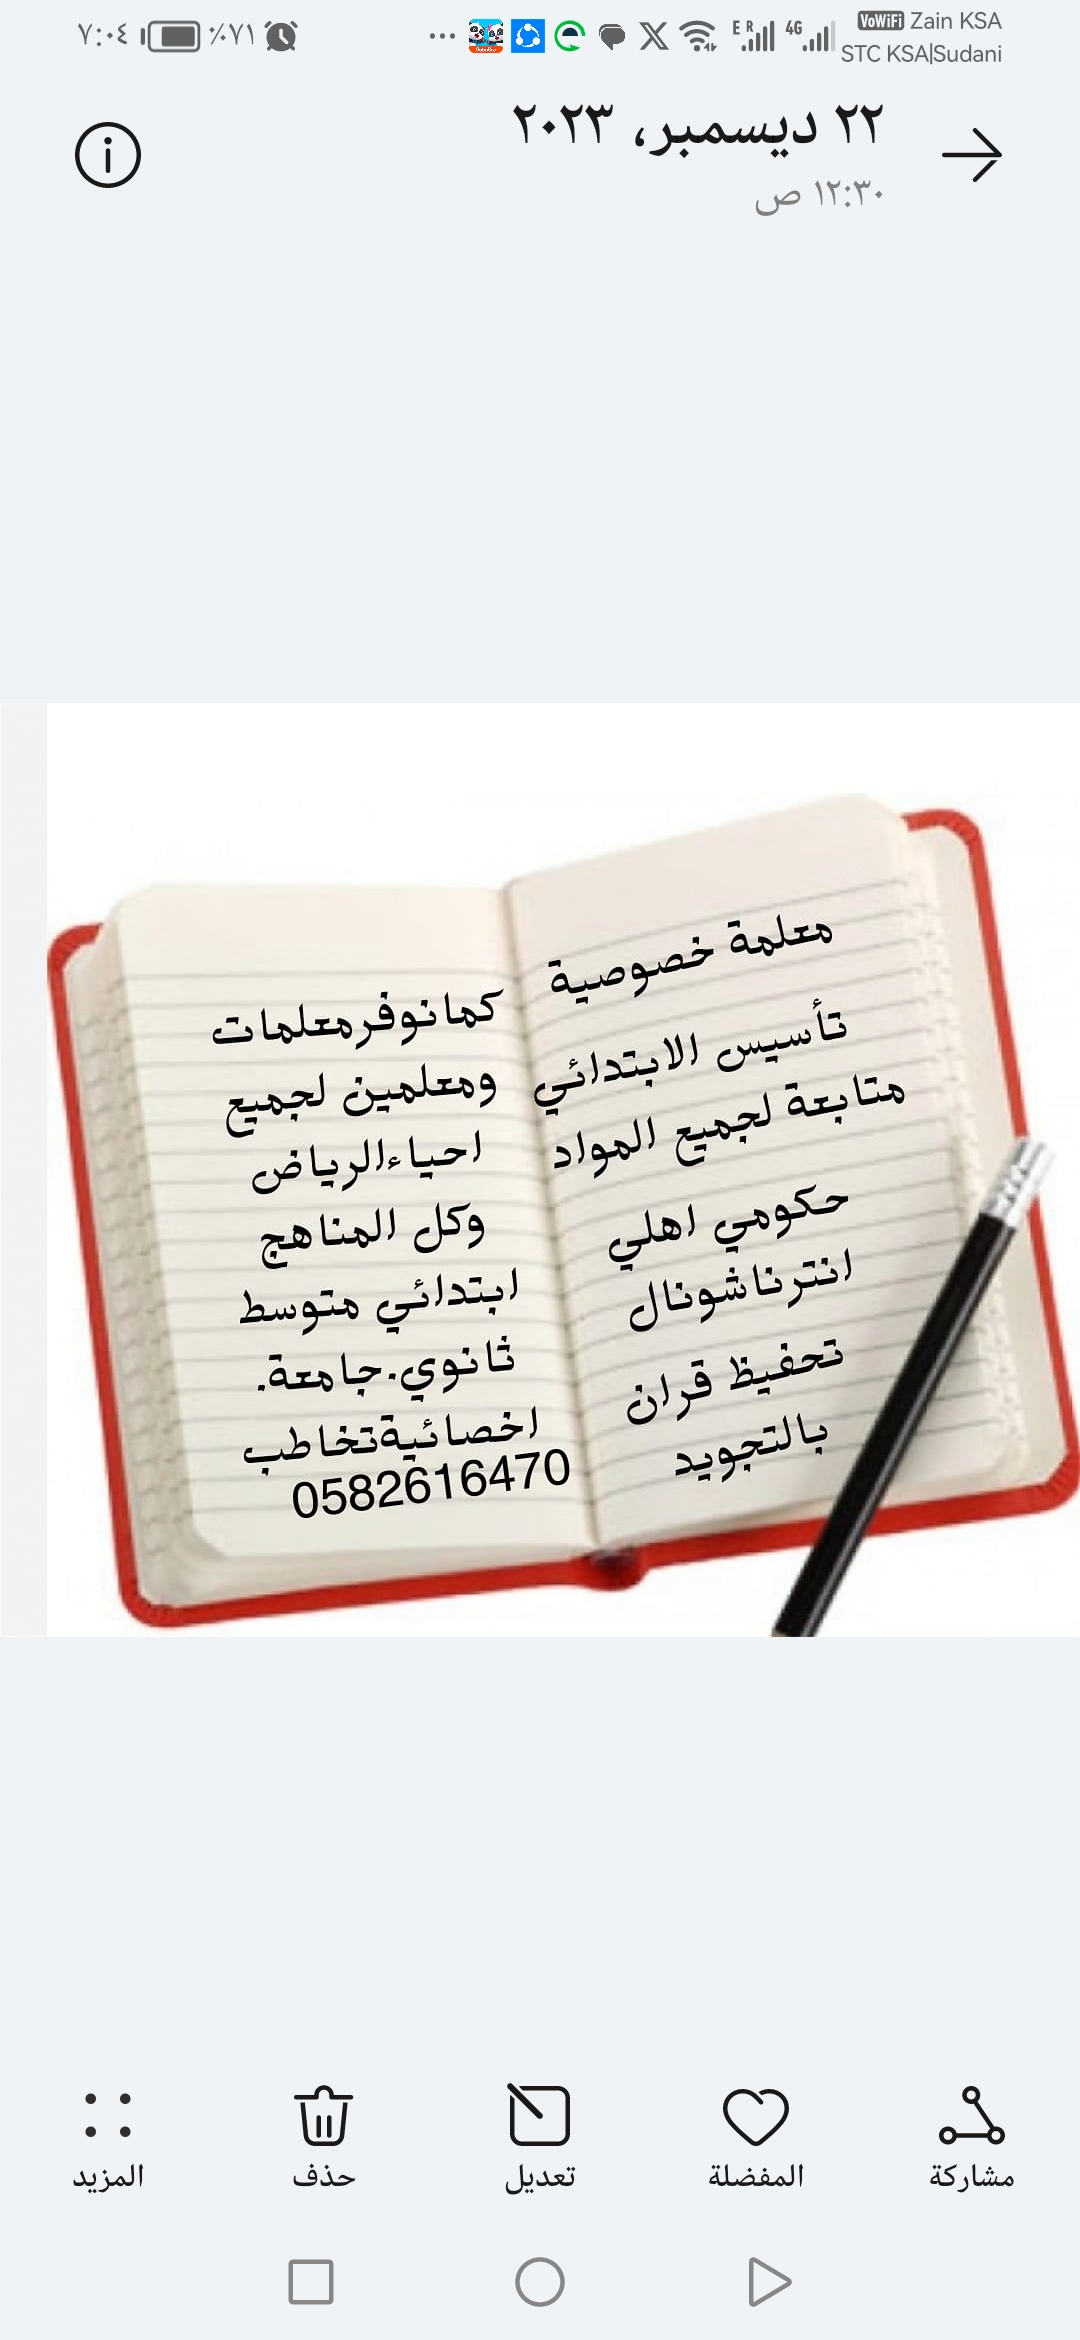 ٧:٠٤ ٪٧١ E R 4G VoWiFi Zain KSA
STC KSA|Sudani
٢٢ ديسمبر، ٢٠٢٣
١٢:٣٠ ص
معلمة خصوصية
تأسيس الابتدائي
متابعة لجميع المواد
حكومي اهلي
انترناشونال
تحفيظ قران
بالتجويد
كما نوفرمعلمات
ومعلمين لجميع
احياءالرياض
وكل المناهج
ابتدائي متوسط
ثانوي.جامعة.
اخصائيةتخاطب
0582616470
مشاركة
المفضلة
تعديل
حذف
المزيد